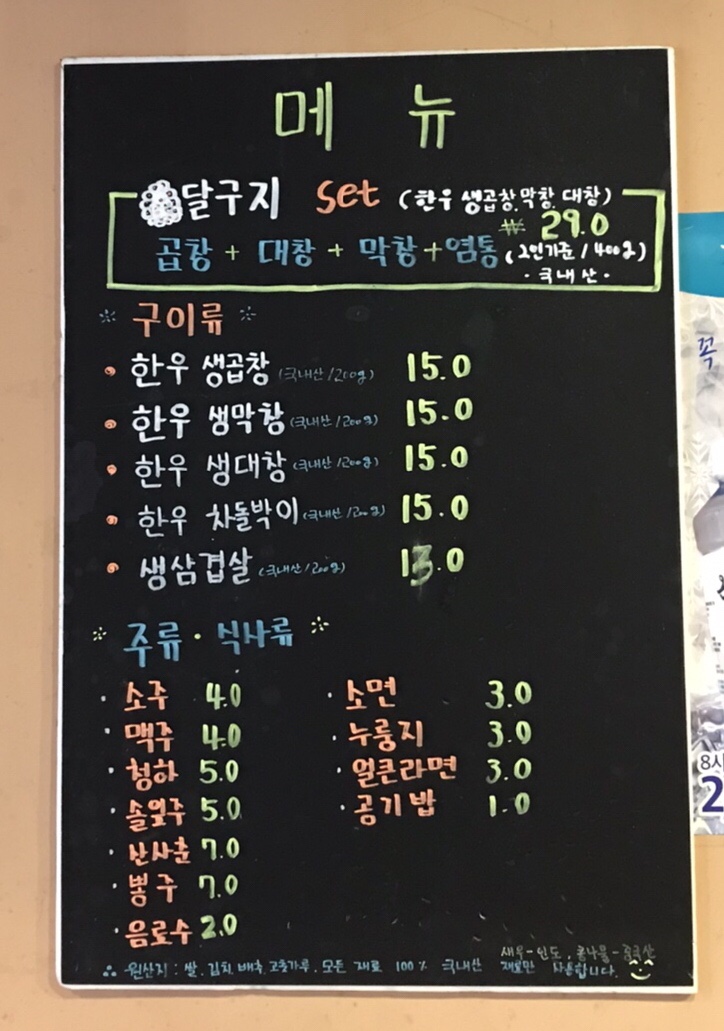 메뉴
달구지 set (한우 생곱창, 막창, 대창)
₩ 29.0
곱창 + 대창 + 막창 + 염통 (2인기준 / 400g)
· 국내산 ·
구이류
한우 생곱창 (국내산/200g) 15.0
한우 생막창 (국내산/200g) 15.0
한우 생대창 (국내산/200g) 15.0
한우 차돌박이 (국내산/200g) 15.0
생삼겹살 (국내산/200g) 13.0
주류 · 식사류
· 소주 4.0
· 맥주 4.0
· 청하 5.0
· 솔잎주 5.0
· 산사춘 7.0
· 뽕주 7.0
· 음료수 2.0
· 소면 3.0
· 누룽지 3.0
· 얼큰라면 3.0
· 공기밥 1.0
새우-인도, 콩나물-중국산
원산지 : 쌀, 김치, 배추, 고춧가루, 모든 재료 100% 국내산 재료만 사용합니다.
꼭
8시
2